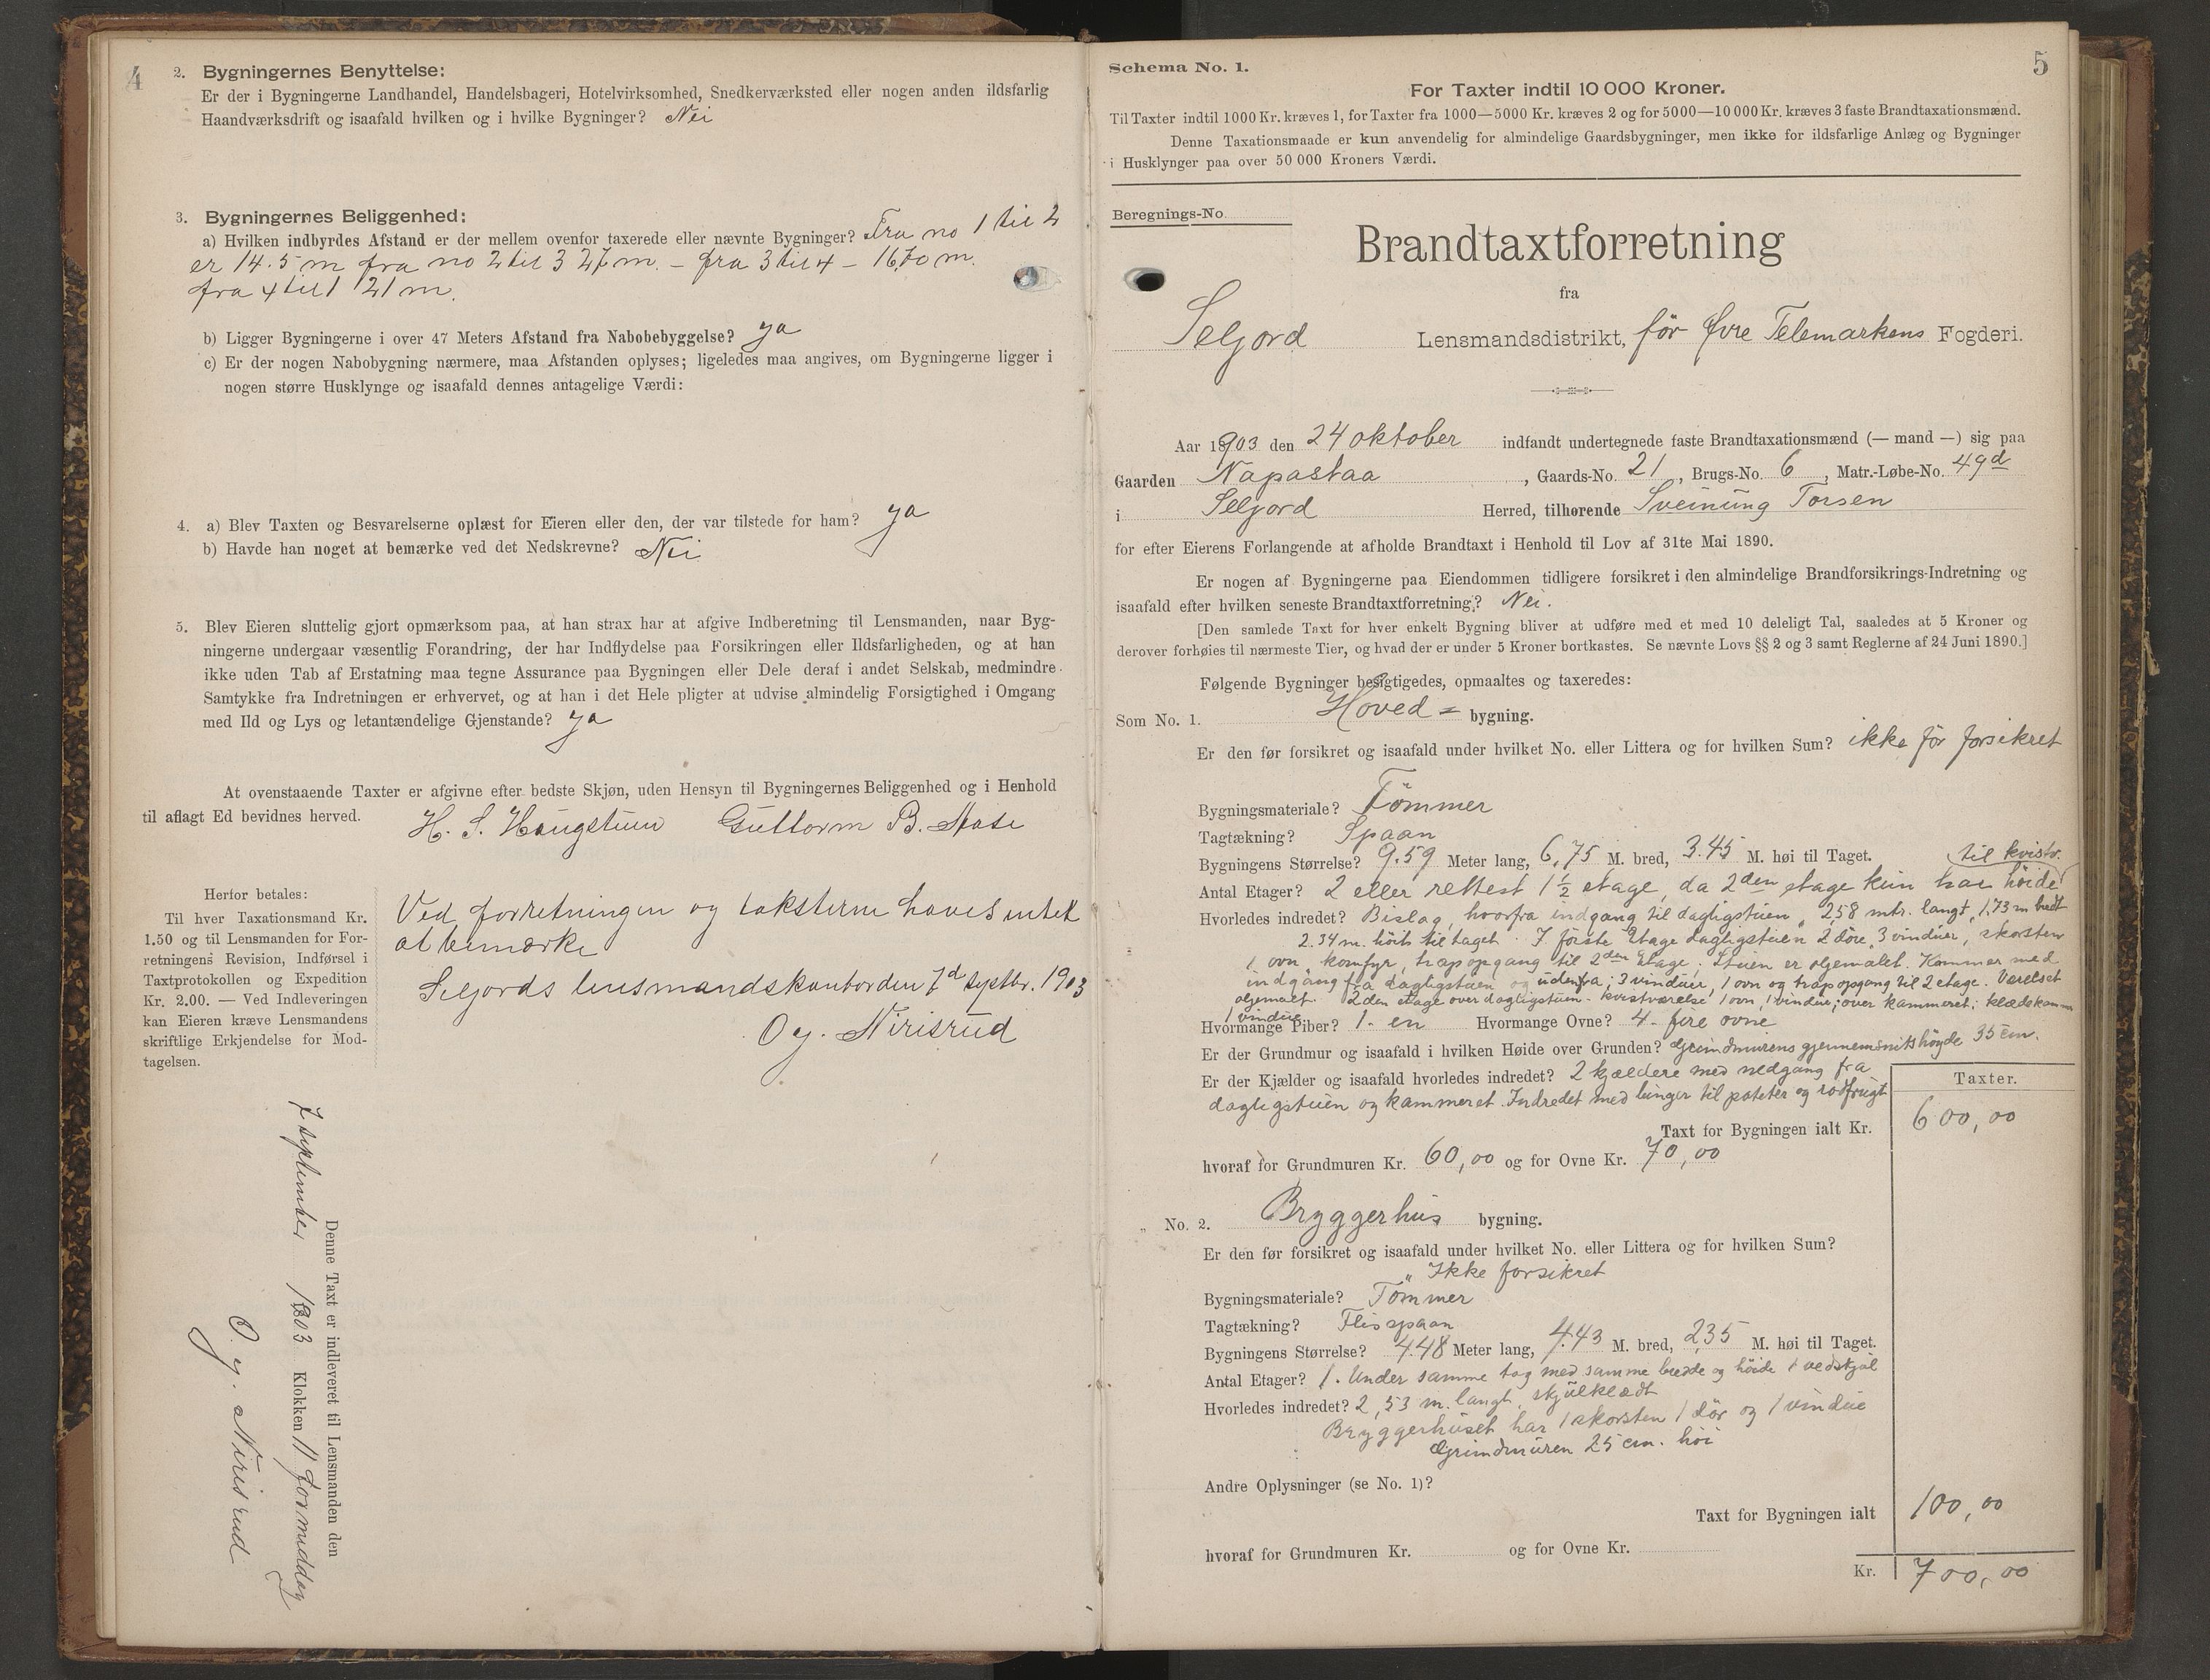 4
2. Bygningernes Benyttelse:
Er der i Bygningerne Landhandel, Handelsbageri, Hotelvirksomhed, Snedkerværksted eller nogen anden ildsfarlig
Haandværksdrift og isaafald hvilken og i hvilke Bygninger? Nei
3. Bygningernes Beliggenhed:
a) Hvilken indbyrdes Afstand er der mellem ovenfor taxerede eller nævnte Bygninger? Fra no 1 til 2
er 14.5 m fra no 2 til 3 27 m. – fra 3 til 4 – 16,70 m.
fra 4 til 1 21 m.
b) Ligger Bygningerne i over 47 Meters Afstand fra Nabobebyggelse? ya
c) Er der nogen Nabobygning nærmere, maa Afstanden oplyses; ligeledes maa angives, om Bygningerne ligger i
nogen større Husklynge og isaafald dennes antagelige Værdi:
4. a) Blev Taxten og Besvarelserne oplæst for Eieren eller den, der var tilstede for ham? ya
b) Havde han noget at bemærke ved det Nedskrevne? Nei
5. Blev Eieren sluttelig gjort opmærksom paa, at han strax har at afgive Indberetning til Lensmanden, naar Byg-
ningerne undergaar væsentlig Forandring, der har Indflydelse paa Forsikringen eller Ildsfarligheden, og at han
ikke uden Tab af Erstatning maa tegne Assurance paa Bygningen eller Dele deraf i andet Selskab, medmindre
Samtykke fra Indretningen er erhvervet, og at han i det Hele pligter at udvise almindelig Forsigtighed i Omgang
med Ild og Lys og letantændelige Gjenstande? ya
At ovenstaaende Taxter er afgivne efter bedste Skjøn, uden Hensyn til Bygningernes Beliggenhed og i Henhold
til aflagt Ed bevidnes herved. H. S. Haugstuen Guttorm B.
Herfor betales:
Til hver Taxationsmand Kr.
1.50 og til Lensmanden for For-
retningens Revision, Indførsel i
Taxtprotokollen og Expedition
Kr. 2.00. — Ved Indleveringen
kan Eieren kræve Lensmandens
skriftlige Erkjendelse for Mod-
tagelsen.
Ved forretningen og taksterne haves intet
at bemærke
Seljords lensmandskontor den 7d septbr. 1903
O. g. Nirisrud
Denne Taxt er indleveret til Lensmanden den
7 september 1903 Klokken 11 formiddag
O. g. Nirisrud
5
Schema No. 1.
For Taxter indtil 10 000 Kroner.
Til Taxter indtil 1000 Kr. kræves 1, for Taxter fra 1000—5000 Kr. kræves 2 og for 5000—10 000 Kr. kræves 3 faste Brandtaxationsmænd.
Denne Taxationsmaade er kun anvendelig for almindelige Gaardsbygninger, men ikke for ildsfarlige Anlæg og Bygninger
i Husklynger paa over 50 000 Kroners Værdi.
Beregnings-No
Brandtaxtforretning
fra
Seljord Lensmandsdistrikt, för Øvre Telemarkens Fogderi.
Aar 1903 den 24 oktober indfandt undertegnede faste Brandtaxationsmænd (— mand —) sig paa
Gaarden Napastaa, Gaards-No. 21, Brugs-No. 6, Matr.-Løbe-No. 49d
i Seljord Herred, tilhørende Sveinung Torsen
for efter Eierens Forlangende at afholde Brandtaxt i Henhold til Lov af 31te Mai 1890.
Er nogen af Bygningerne paa Eiendommen tidligere forsikret i den almindelige Brandforsikrings-Indretning og
isaafald efter hvilken seneste Brandtaxtforretning? Nei.
[Den samlede Taxt for hver enkelt Bygning bliver at udføre med et med 10 deleligt Tal, saaledes at 5 Kroner og
derover forhøies til nærmeste Tier, og hvad der er under 5 Kroner bortkastes. Se nævnte Lovs §§ 2 og 3 samt Reglerne af 24 Juni 1890.]
Følgende Bygninger besigtigedes, opmaaltes og taxeredes:
Som No. 1. Hoved= bygning.
Er den før forsikret og isaafald under hvilket No. eller Littera og for hvilken Sum? ikke för forsikret
Bygningsmateriale? Tömmer
Tagtækning? Spaan
Bygningens Størrelse? 9.59 Meter lang, 6,75 M. bred, 3.45 M. høi til Taget. til kvistv.
Antal Etager? 2 eller rettest 1 1/2 etage, da 2den etage kun har höide
Hvorledes indredet? Bislag, hvorfra indgang til dagligstuen, 258 mtr. langt, 1,73 m bredt
2.34 m. höit til taget. I förste Etage dagligstuen 2 döre, 3 vinduer, skorsten
1 ovn, komfyr, trapopgang til 2den Etage. Stuen er oljemalet. Kammer med
indgang fra dagligstuen og udenfra; 3 vinduer, 1 ovn og trapopgang til 2 etage. Værelset
oljemalt. 2den etage over dagligstuen kvistværelse 1 ovn, 1 vindue; over kammeret: klædekam
1 vindue
Hvormange Piber? 1. en Hvormange Ovne? 4. fire ovne
Er der Grundmur og isaafald i hvilken Høide over Grunden? Grundmurens gjennemsnitshöyde 35 cm.
Er der Kjælder og isaafald hvorledes indredet? 2 kjældere med nedgang fra
dagligstuen og kammeret. Indredet med binger til poteter og rodfrugt
Taxter.
Taxt for Bygningen ialt Kr. 600,00
hvoraf for Grundmuren Kr. 60,00 og for Ovne Kr. 70,00
„ No. 2. Bryggerhus bygning.
Er den før forsikret og isaafald under hvilket No. eller Littera og for hvilken Sum?
„ Ikke forsikret
Bygningsmateriale? Tömmer
Tagtækning? Flisspaan
Bygningens Størrelse? 4.48 Meter lang, 4.43 M. bred, 2,35 M. høi til Taget.
Antal Etager? 1. Under samme tag med samme bredde og höide 1 vedskjul
Hvorledes indredet? 2,53 m. langt, skjulklædt
Bryggerhuset har 1 skorsten 1 dör og 1 vindue
Grundmuren 25 cm. höi
Andre Oplysninger (se No. 1)?
Taxt for Bygningen ialt 100,00
hvoraf for Grundmuren Kr. og for Ovne Kr.
Kr. 700,00